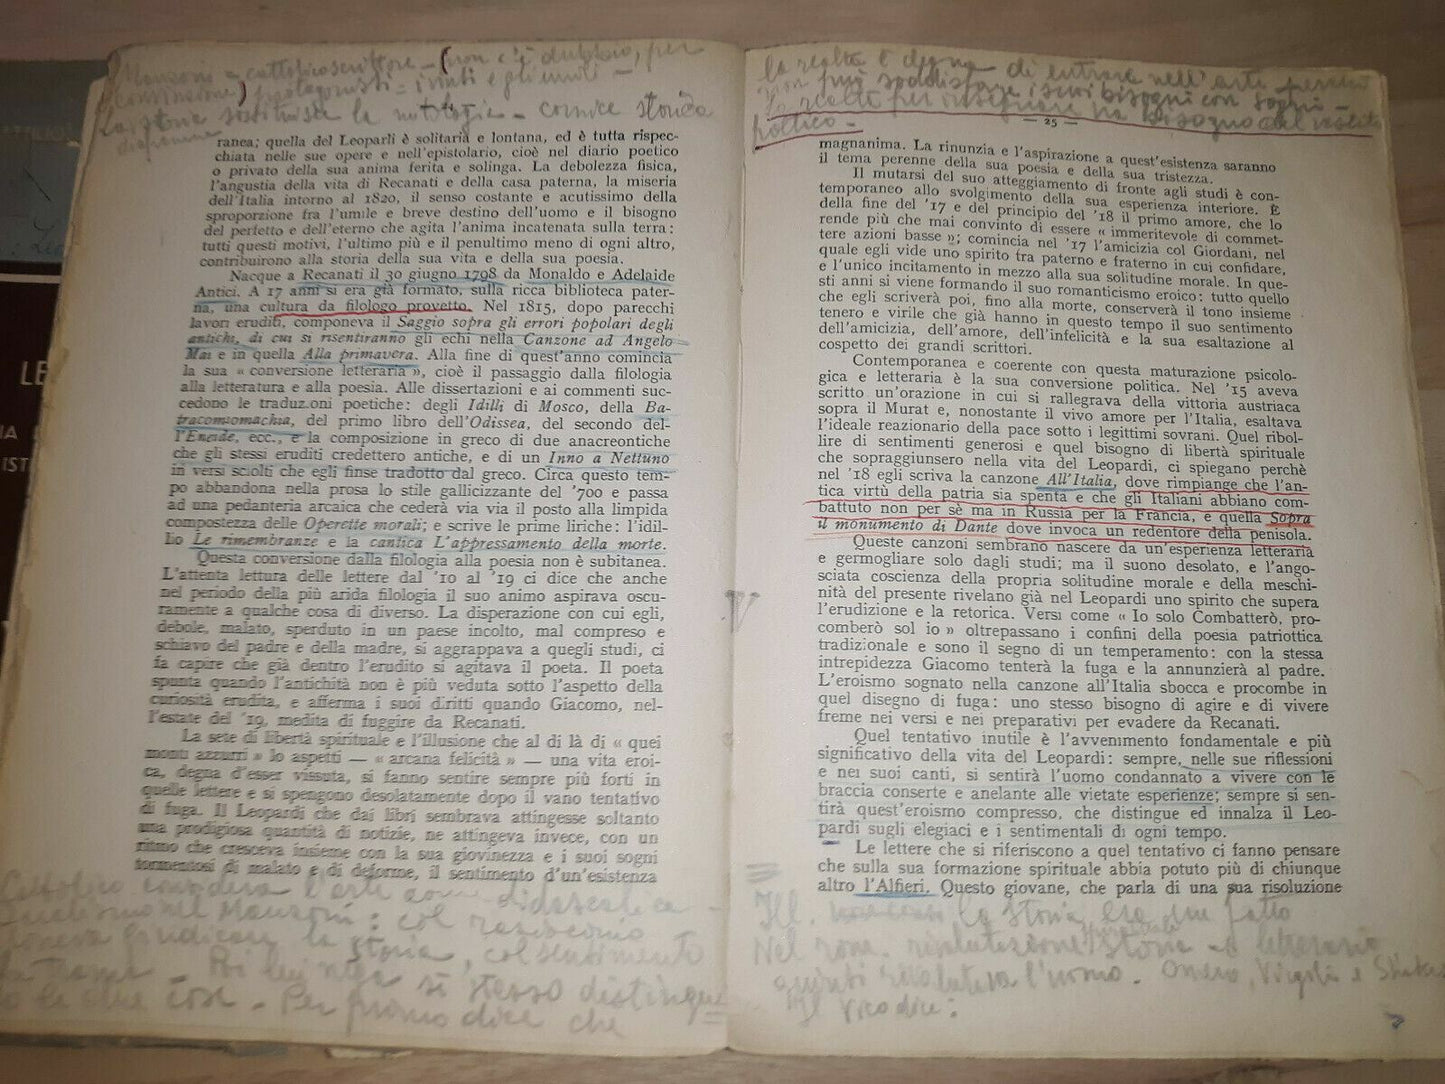 Manzoni cattolico scrittore – (non c'è dubbio, per
convinzione) protagonisti = i vinti e gli umili –
La storia sostituisce la mitologia – cornice storica
ranea; quella del Leoparli è solitaria e lontana, ed è tutta rispec-
chiata nelle sue opere e nell'epistolario, cioè nel diario poetico
o privato della sua anima ferita e solinga. La debolezza fisica,
l'angustia della vita di Recanati e della casa paterna, la miseria
dell'Italia intorno al 1820, il senso costante e acutissimo della
sproporzione fra l'umile e breve destino dell'uomo e il bisogno
del perfetto e dell'eterno che agita l'anima incatenata sulla terra:
tutti questi motivi, l'ultimo più e il penultimo meno di ogni altro,
contribuirono alla storia della sua vita e della sua poesia.
Nacque a Recanati il 30 giugno 1798 da Monaldo e Adelaide
Antici. A 17 anni si era già formato, sulla ricca biblioteca pater-
na, una cultura da filologo provetto. Nel 1815, dopo parecchi
lavori eruditi, componeva il Saggio sopra gli errori popolari degli
antichi, di cui si risentiranno gli echi nella Canzone ad Angelo
Mai e in quella Alla primavera. Alla fine di quest'anno comincia
la sua « conversione letteraria », cioè il passaggio dalla filologia
alla letteratura e alla poesia. Alle dissertazioni e ai commenti suc-
cedono le traduzioni poetiche: degli Idilli di Mosco, della Ba-
tracomiomachia, del primo libro dell'Odissea, del secondo del-
l'Eneide, ecc., e la composizione in greco di due anacreontiche
che gli stessi eruditi credettero antiche, e di un Inno a Nettuno
in versi sciolti che egli finse tradotto dal greco. Circa questo tem-
po abbandona nella prosa lo stile gallicizzante del '700 e passa
ad una pedanteria arcaica che cederà via via il posto alla limpida
compostezza delle Operette morali; e scrive le prime liriche: l'idil-
lio Le rimembranze e la cantica L'appressamento della morte.
Questa conversione dalla filologia alla poesia non è subitanea.
L'attenta lettura delle lettere dal '10 al '19 ci dice che anche
nel periodo della più arida filologia il suo animo aspirava oscu-
ramente a qualche cosa di diverso. La disperazione con cui egli,
debole, malato, sperduto in un paese incolto, mal compreso e
schiavo del padre e della madre, si aggrappava a quegli studi, ci
fa capire che già dentro l'erudito si agitava il poeta. Il poeta
spunta quando l'antichità non è più veduta sotto l'aspetto della
curiosità erudita, e afferma i suoi diritti quando Giacomo, nel-
l'estate del '19, medita di fuggire da Recanati.
La sete di libertà spirituale e l'illusione che al di là di « quei
monti azzurri » lo aspetti — « arcana felicità » — una vita eroi-
ca, degna d'esser vissuta, si fanno sentire sempre più forti in
quelle lettere e si spengono desolatamente dopo il vano tentativo
di fuga. Il Leopardi che dai libri sembrava attingesse soltanto
una prodigiosa quantità di notizie, ne attingeva invece, con un
ritmo che cresceva insieme con la sua giovinezza e i suoi sogni
tormentosi di malato e di deforme, il sentimento d'un'esistenza
Cattolico considera l'arte come didascalica –
Manzoni: col raziocinio
la storia, col sentimento
– Poi lui nega si stesso distingue
le due cose – Per primo dice che
la realtà è degna di entrare nell'arte perché
non può soddisfare i suoi bisogni con sogni –
poetico –
— 25 —
magnanima. La rinunzia e l'aspirazione a quest'esistenza saranno
il tema perenne della sua poesia e della sua tristezza.
Il mutarsi del suo atteggiamento di fronte agli studi è con-
temporaneo allo svolgimento della sua esperienza interiore. È
della fine del '17 e del principio del '18 il primo amore, che lo
rende più che mai convinto di essere « immeritevole di commet-
tere azioni basse »; comincia nel '17 l'amicizia col Giordani, nel
quale egli vide uno spirito tra paterno e fraterno in cui confidare,
e l'unico incitamento in mezzo alla sua solitudine morale. In que-
sti anni si viene formando il suo romanticismo eroico: tutto quello
che egli scriverà poi, fino alla morte, conserverà il tono insieme
tenero e virile che già hanno in questo tempo il suo sentimento
dell'amicizia, dell'amore, dell'infelicità e la sua esaltazione al
cospetto dei grandi scrittori.
Contemporanea e coerente con questa maturazione psicolo-
gica e letteraria è la sua conversione politica. Nel '15 aveva
scritto un'orazione in cui si rallegrava della vittoria austriaca
sopra il Murat e, nonostante il vivo amore per l'Italia, esaltava
l'ideale reazionario della pace sotto i legittimi sovrani. Quel ribol-
lire di sentimenti generosi e quel bisogno di libertà spirituale
che sopraggiunsero nella vita del Leopardi, ci spiegano perchè
nel '18 egli scriva la canzone All'Italia, dove rimpiange che l'an-
tica virtù della patria sia spenta e che gli Italiani abbiano com-
battuto non per sè ma in Russia per la Francia, e quella Sopra
il monumento di Dante dove invoca un redentore della penisola.
Queste canzoni sembrano nascere da un'esperienza letteraria
e germogliare solo dagli studi; ma il suono desolato, e l'ango-
sciata coscienza della propria solitudine morale e della meschi-
nità del presente rivelano già nel Leopardi uno spirito che supera
l'erudizione e la retorica. Versi come « Io solo Combatterò, pro-
comberò sol io » oltrepassano i confini della poesia patriottica
tradizionale e sono il segno di un temperamento: con la stessa
intrepidezza Giacomo tenterà la fuga e la annunzierà al padre.
L'eroismo sognato nella canzone all'Italia sbocca e procombe in
quel disegno di fuga: uno stesso bisogno di agire e di vivere
freme nei versi e nei preparativi per evadere da Recanati.
Quel tentativo inutile è l'avvenimento fondamentale e più
significativo della vita del Leopardi: sempre, nelle sue riflessioni
e nei suoi canti, si sentirà l'uomo condannato a vivere con le
braccia conserte e anelante alle vietate esperienze; sempre si sen-
tirà quest'eroismo compresso, che distingue ed innalza il Leo-
pardi sugli elegiaci e i sentimentali di ogni tempo.
Le lettere che si riferiscono a quel tentativo ci fanno pensare
che sulla sua formazione spirituale abbia potuto più di chiunque
altro l'Alfieri. Questo giovane, che parla di una sua risoluzione
Ill. la storia era un fatto
Nel rom. rivalutazione storia
quindi rivalutava l'uomo. Omero, Virgilio e
Il Vico dice: